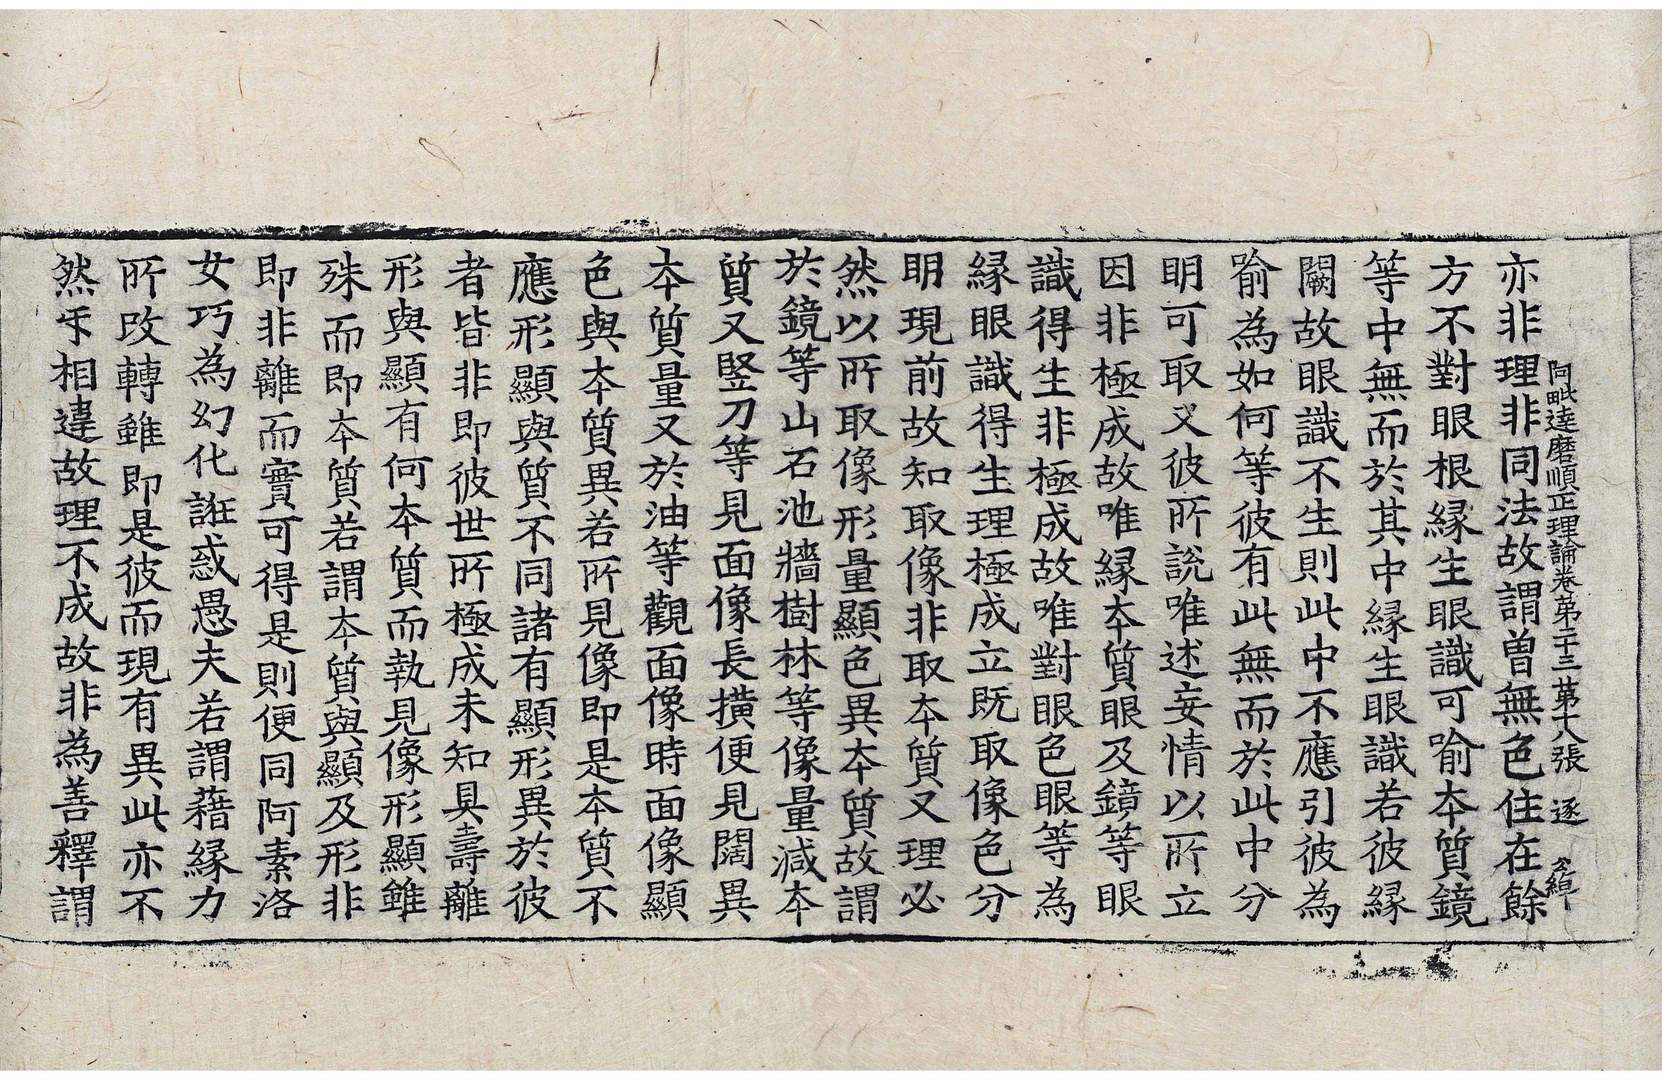 阿毗達磨順正理論卷第二十三 第十八張 逐
亦非理非同法故謂曽無色住在餘
方不對眼根縁生眼識可喻本質鏡
等中無而於其中縁生眼識若彼縁
闕故眼識不生則此中不應引彼為
喻為如何等彼有此無而於此中分
明可取又彼所說唯述妄情以所立
因非極成故唯縁本質眼及鏡等眼
識得生非極成故唯對眼色眼等為
縁眼識得生理極成立既取像色分
明現前故知取像非取本質又理必
然以所取像形量顯色異本質故謂
於鏡等山石池牆樹林等像量減本
質又竪刀等見面像長撗便見闊異
本質量又於油等觀面像時面像顯
色與本質異若所見像即是本質不
應形顯與質不同諸有顯形異於彼
者皆非即彼世所極成未知具壽離
形與顯有何本質而執見像形顯雖
殊而即本質若謂本質與顯及形非
即非離而實可得是則便同阿素洛
女巧為幻化誑惑愚夫若謂藉縁力
所改轉雖即是彼而現有異此亦不
然乑相違故理不成故非為善釋謂